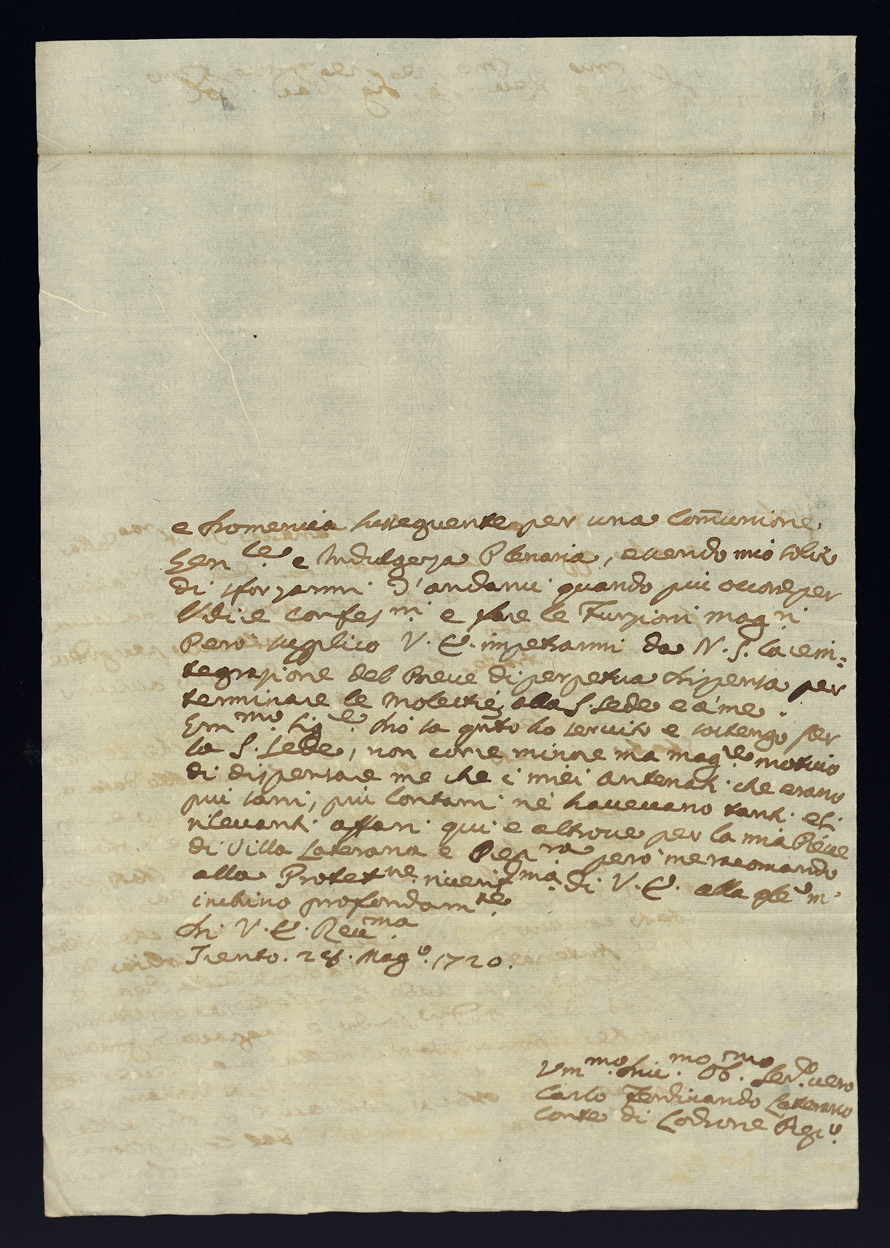 e Domenica susseguente per una Com̃unione
Gen.le e Indulgenza Plenaria, essendo mio solito
di sforzarmi d'andarvi quando più occorre per
Udire confes.ni e fare le Funzioni mag.ri
Però supplico V. E. impetrarmi da N. S. la rein:
tegrazione del Breve di perpetua dispensa per
terminare le molestie alla S. Sede e à me.
Em.mo Sig.re Dio sa q̃nto ho servito e sostengo per
la S. Sede, non corre minore ma mag.re motivo
di dispensare me che i miei Antenati che erano
più sani, più lontani nè havevano tanti et
rilevanti affari qui e altrove per la mia Pieve
di Villa Laterana e però me racomando
alla Protet.ne riverid.ma di V. E. alla qle m'
inchino profondam.te
Di V. E. Rev.ma
Trento. 28. Mag.o 1720.
Um.mo Div.mo Ob.mo Ser.e vero
Carlo Ferdinando Laterano
Conte di Lodrone